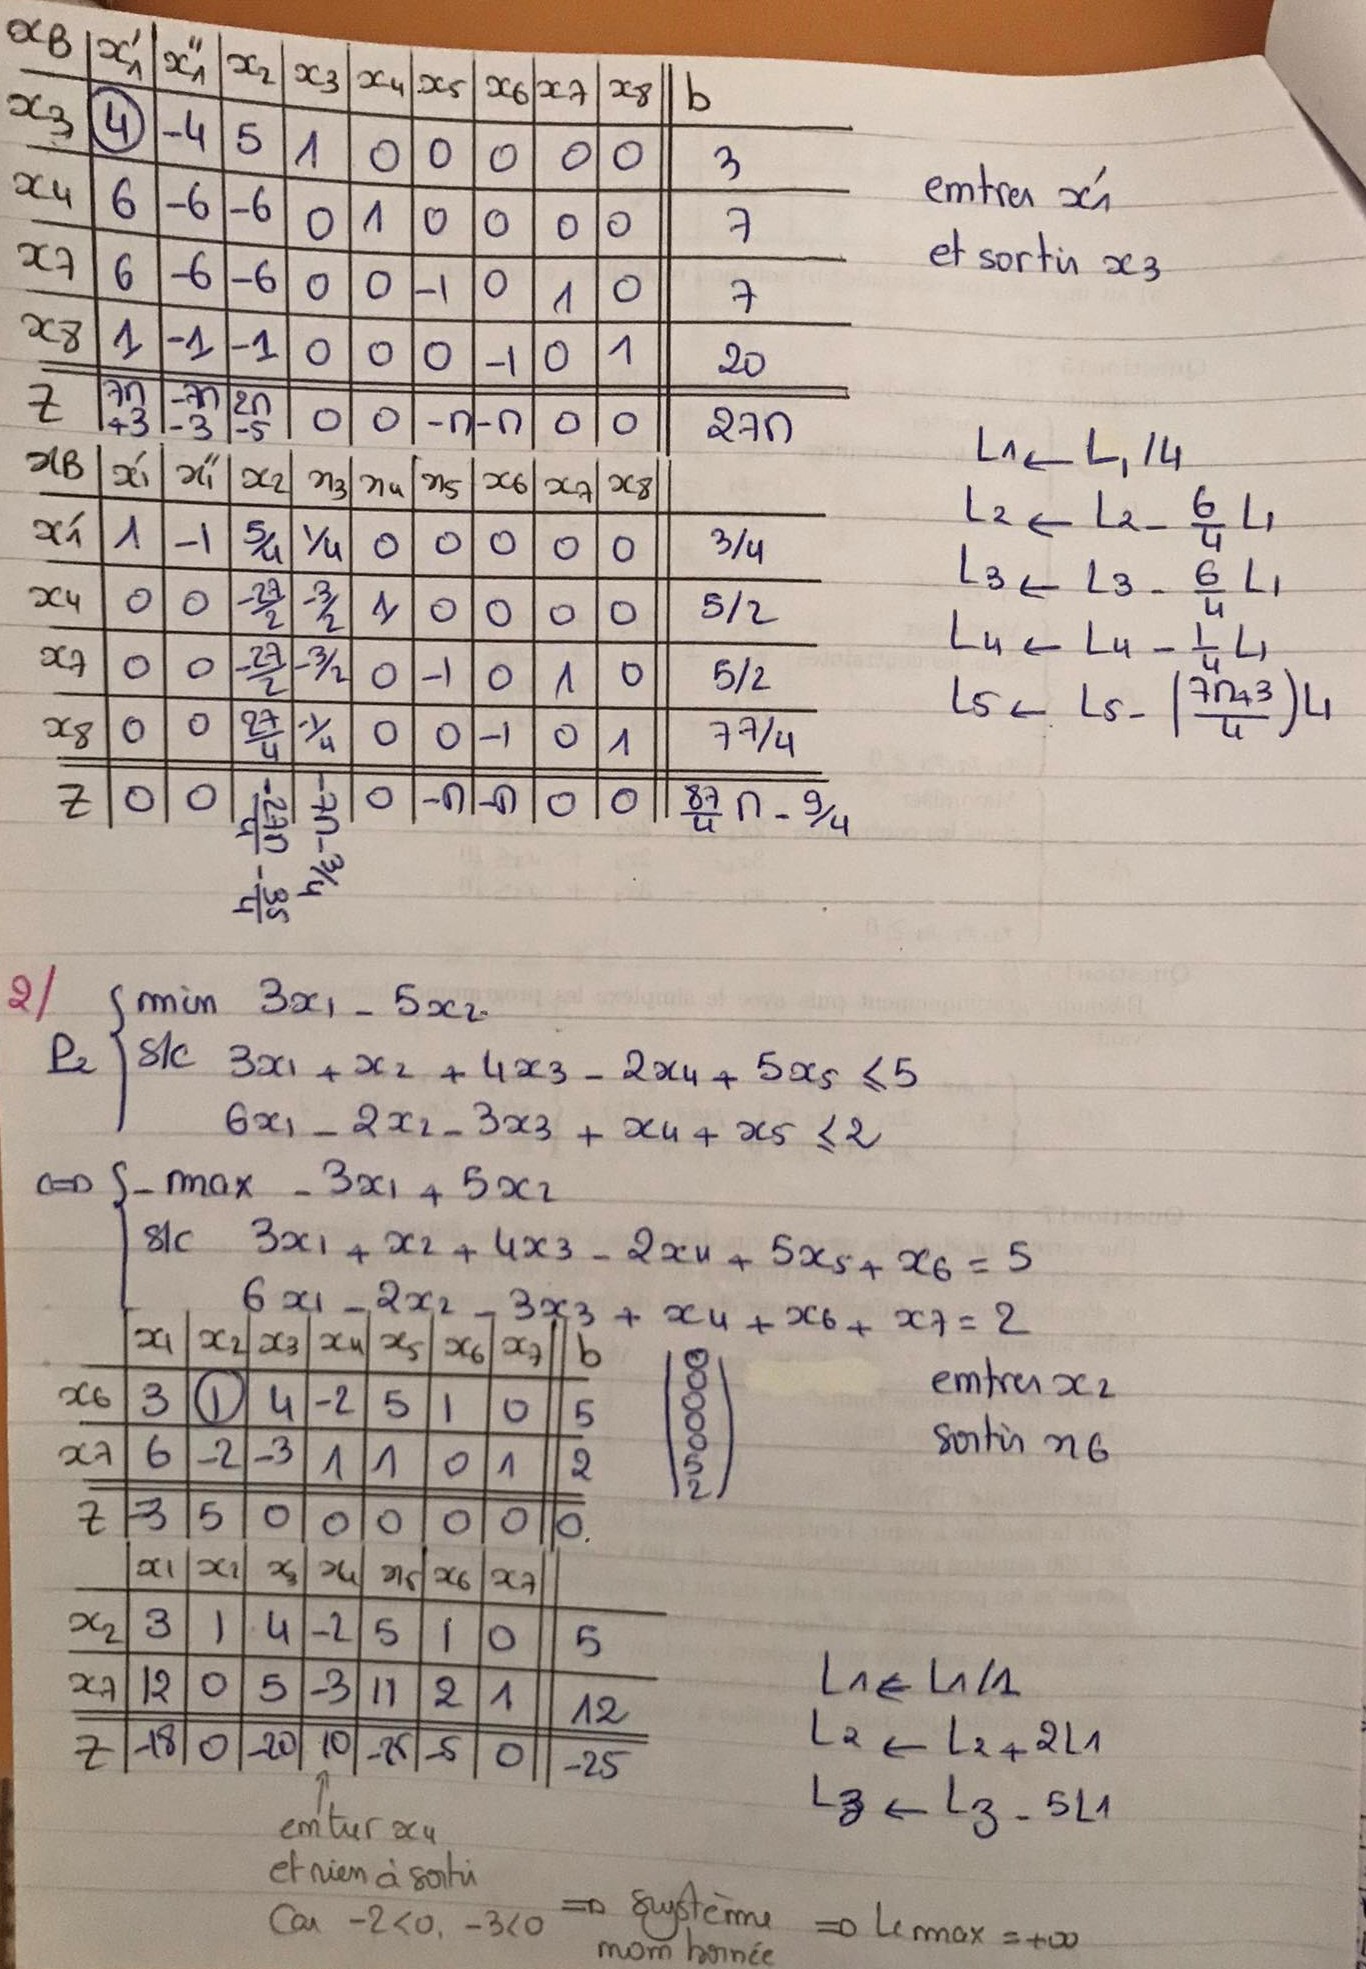 xB | x'1 | x''1 | x2 | x3 | x4 | x5 | x6 | x7 | x8 || b
x3 | 4 | -4 | 5 | 1 | 0 | 0 | 0 | 0 | 0 || 3
x4 | 6 | -6 | -6 | 0 | 1 | 0 | 0 | 0 | 0 || 7
x7 | 6 | -6 | -6 | 0 | 0 | -1 | 0 | 1 | 0 || 7
x8 | 1 | -1 | -1 | 0 | 0 | 0 | -1 | 0 | 1 || 20
Z | 7n +3 | -7n -3 | 2n -5 | 0 | 0 | -n | -n | 0 | 0 || 27n
emtrer x'1
et sortir x3
xB | x'1 | x''1 | x2 | x3 | x4 | x5 | x6 | x7 | x8 ||
x'1 | 1 | -1 | 5/4 | 1/4 | 0 | 0 | 0 | 0 | 0 || 3/4
x4 | 0 | 0 | -27/2 | -3/2 | 1 | 0 | 0 | 0 | 0 || 5/2
x7 | 0 | 0 | -27/2 | -3/2 | 0 | -1 | 0 | 1 | 0 || 5/2
x8 | 0 | 0 | 27/4 | -1/4 | 0 | 0 | -1 | 0 | 1 || 77/4
Z | 0 | 0 | -27n/4 - 35/4 | -7n - 3/4 | 0 | -n | -n | 0 | 0 || 87/4 n - 9/4
L1 ← L1/4
L2 ← L2 - 6/4 L1
L3 ← L3 - 6/4 L1
L4 ← L4 - 1/4 L1
L5 ← L5 - (7n+3/4) L1
2/ { min 3x1 - 5x2
P2 s/c 3x1 + x2 + 4x3 - 2x4 + 5x5 ≤ 5
6x1 - 2x2 - 3x3 + x4 + x5 ≤ 2
⇔ { - max - 3x1 + 5x2
s/c 3x1 + x2 + 4x3 - 2x4 + 5x5 + x6 = 5
6x1 - 2x2 - 3x3 + x4 + x6 + x7 = 2
| x1 | x2 | x3 | x4 | x5 | x6 | x7 || b
x6 | 3 | 1 | 4 | -2 | 5 | 1 | 0 || 5
x7 | 6 | -2 | -3 | 1 | 1 | 0 | 1 || 2
Z | -3 | 5 | 0 | 0 | 0 | 0 | 0 || 0.
(0
0
0
0
0
5
2)
emtrer x2
sortir x6
| x1 | x2 | x3 | x4 | x5 | x6 | x7 ||
x2 | 3 | 1 | 4 | -2 | 5 | 1 | 0 || 5
x7 | 12 | 0 | 5 | -3 | 11 | 2 | 1 || 12
Z | -18 | 0 | -20 | 10 | -25 | -5 | 0 || -25
L1 ← L1/1
L2 ← L2 + 2L1
L3 ← L3 - 5L1
↑
emtrer x4
et rien à sortir
Car -2<0, -3<0 ⇒ système mom bornée ⇒ Le max = +∞